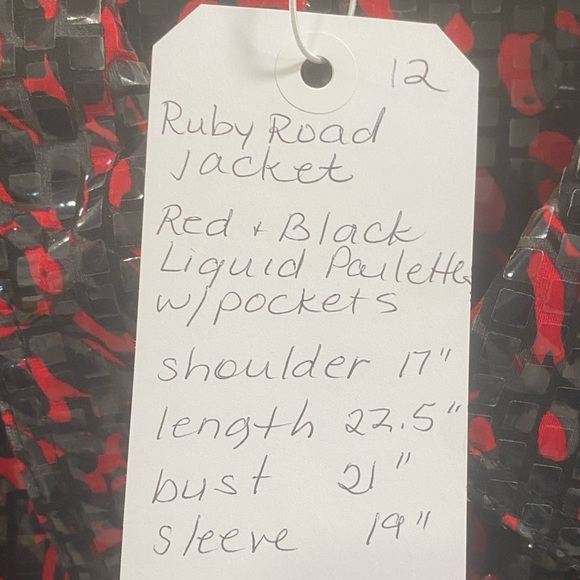 12
Ruby Road
Jacket
Red + Black
Liquid Pailette
w/pockets
shoulder 17"
length 22.5"
bust 21"
sleeve 19"